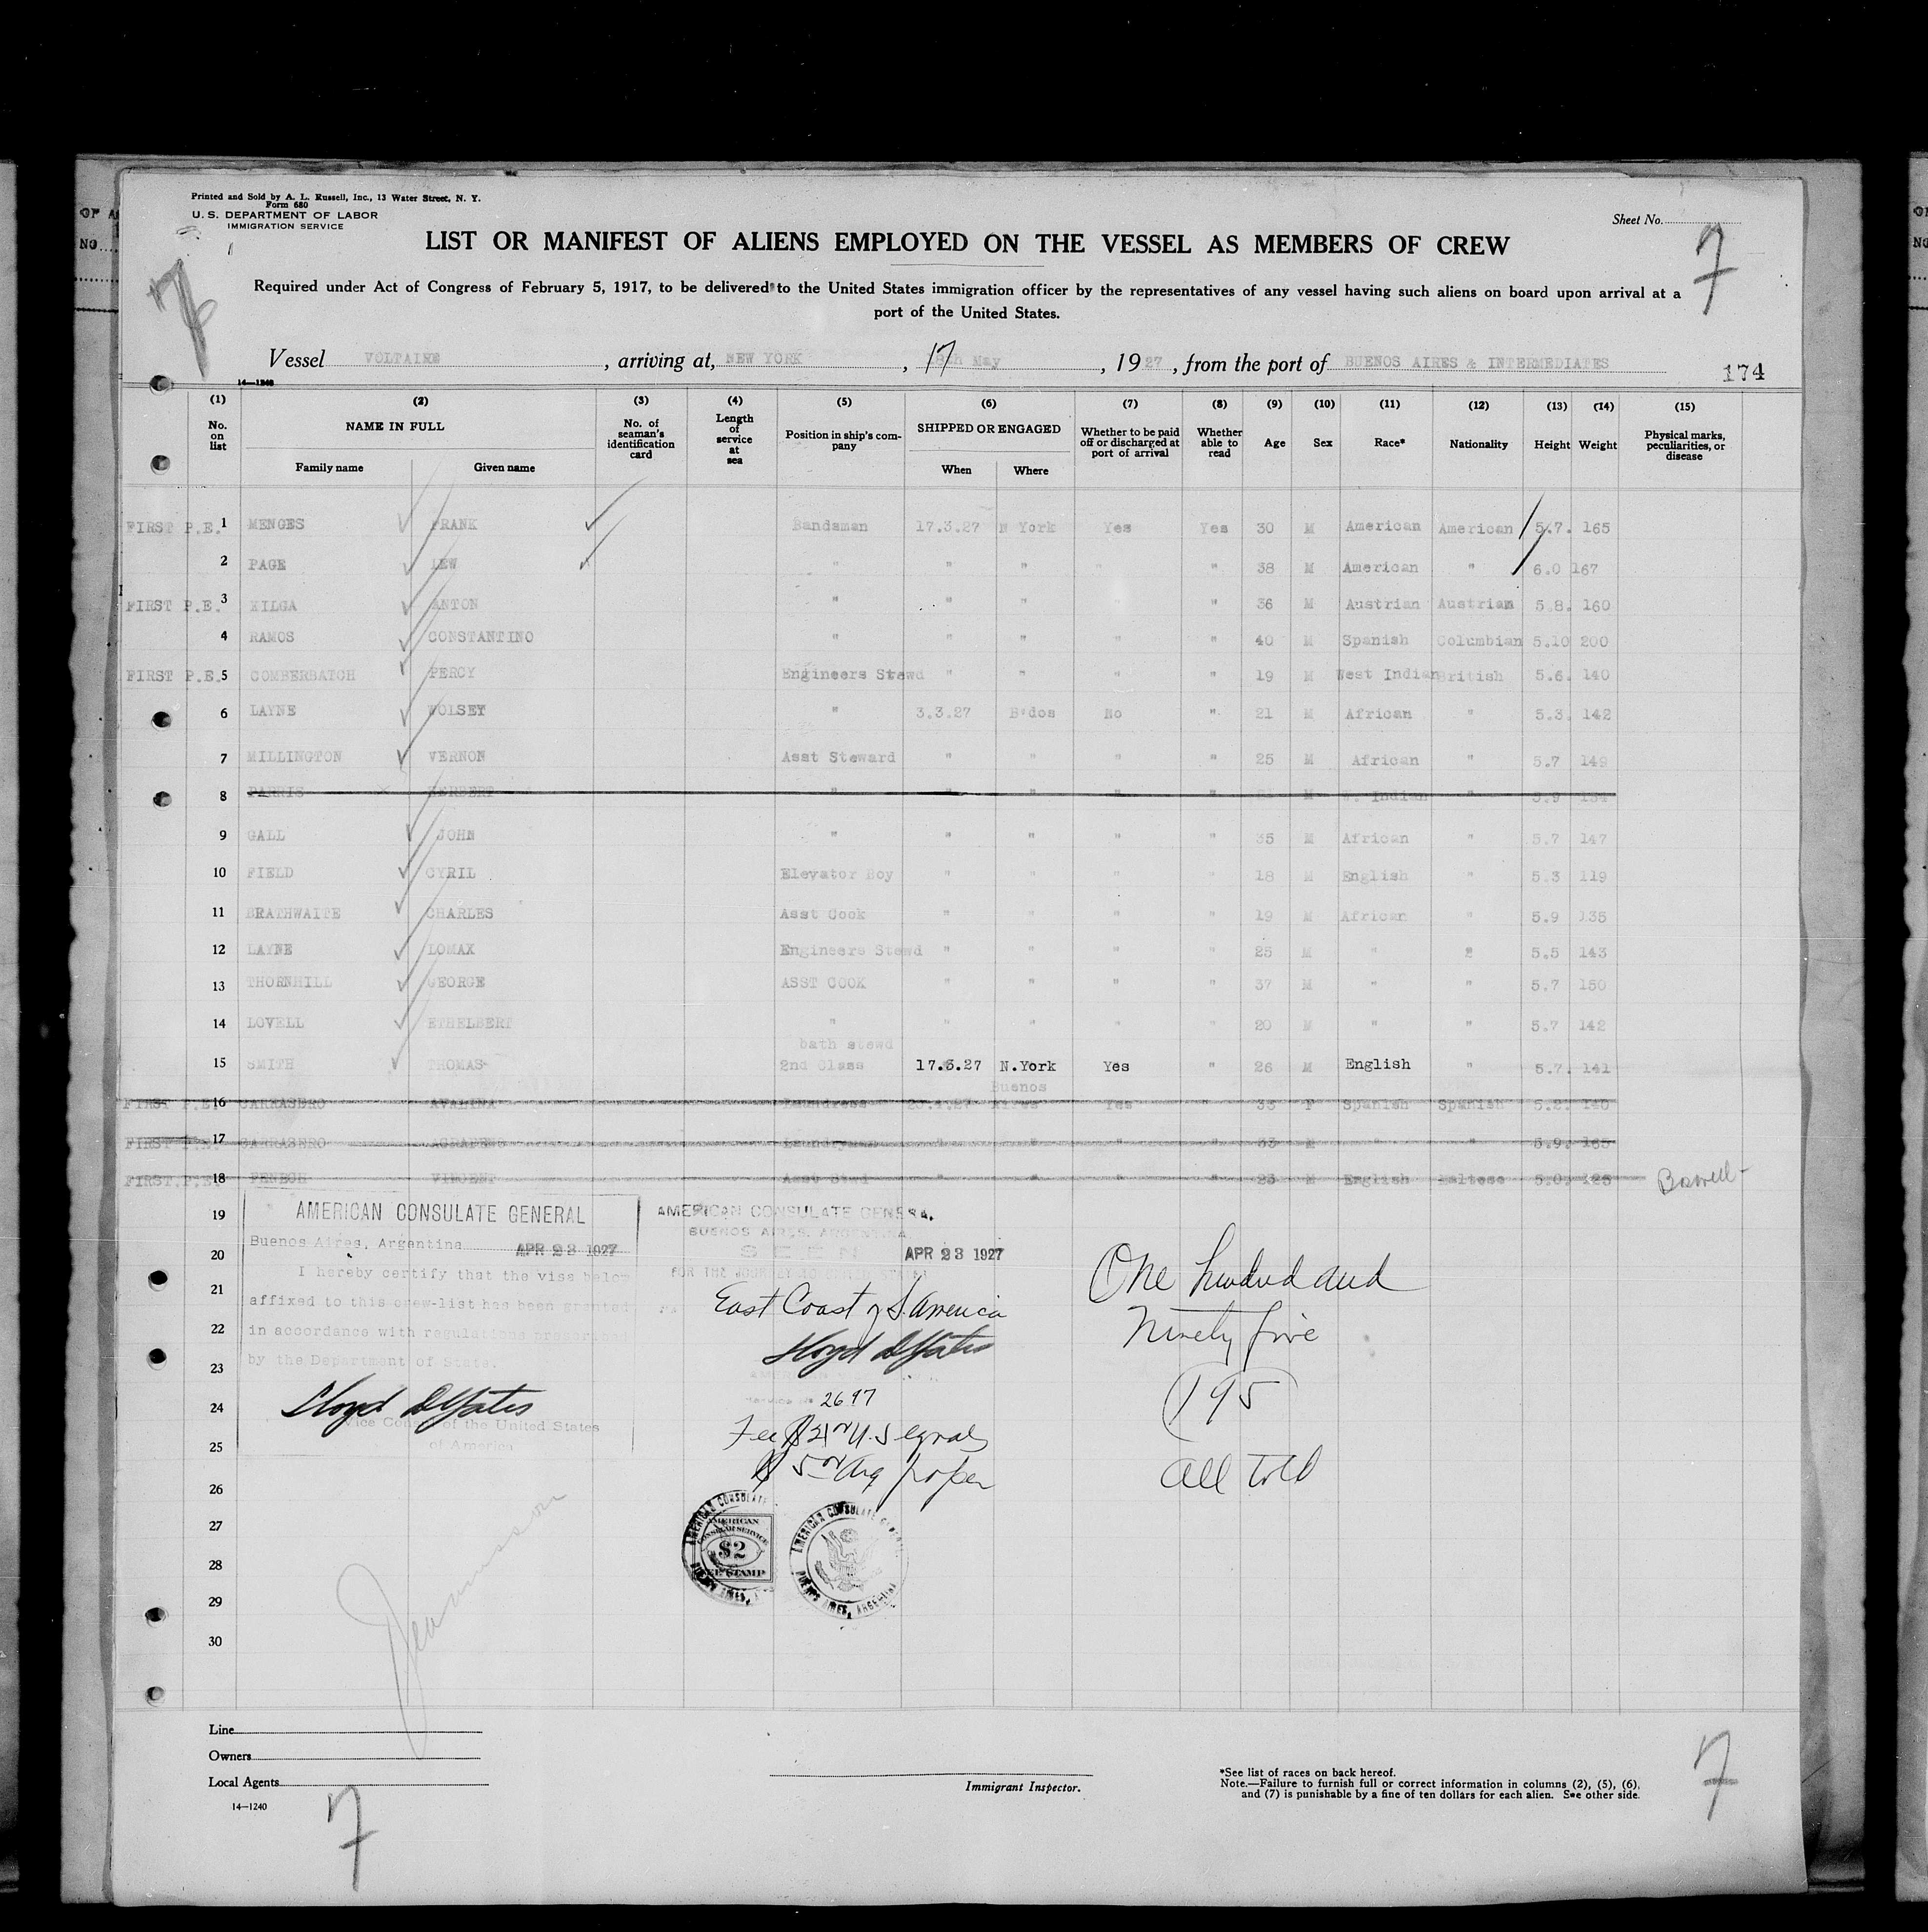 Printed and Sold by A. L. Russell, Inc., 13 Water Street, N. Y.
Form 680
U. S. DEPARTMENT OF LABOR
IMMIGRATION SERVICE
Sheet No.
7
7
LIST OR MANIFEST OF ALIENS EMPLOYED ON THE VESSEL AS MEMBERS OF CREW
Required under Act of Congress of February 5, 1917, to be delivered to the United States immigration officer by the representatives of any vessel having such aliens on board upon arrival at a
port of the United States.
Vessel VOLTAIRE, arriving at, NEW YORK, 17 18th May, 1927, from the port of BUENOS AIRES & INTERMEDIATES
174
14—1240
(1) (2) (3) (4) (5) (6) (7) (8) (9) (10) (11) (12) (13) (14) (15)
No. on list NAME IN FULL Family name Given name No. of seaman's identification card Length of service at sea Position in ship's company SHIPPED OR ENGAGED When Where Whether to be paid off or discharged at port of arrival Whether able to read Age Sex Race* Nationality Height Weight Physical marks, peculiarities, or disease
FIRST P.E. 1 MENGES FRANK Bandsman 17.3.27 N York Yes Yes 30 M American American 5.7. 165
2 PAGE LEW " " " " " 38 M American " 6.0 167
FIRST P.E. 3 KILGA ANTON " " " " " 36 M Austrian Austrian 5.8. 160
4 RAMOS CONSTANTINO " " " " " 40 M Spanish Columbian 5.10 200
FIRST P.E. 5 COMBERBATCH PERCY Engineers Stewd " " " " 19 M West Indian British 5.6. 140
6 LAYNE WOLSEY " 3.3.27 B'dos No " 21 M African " 5.3. 142
7 MILLINGTON VERNON Asst Steward " " " " 25 M African " 5.7 149
8 PARRIS HERBERT " " " " " M W. Indian " 5.9 134
9 GALL JOHN " " " " " 35 M African " 5.7 147
10 FIELD CYRIL Elevator Boy " " " " 18 M English " 5.3 119
11 BRATHWAITE CHARLES Asst Cook " " " " 19 M African " 5.9 135
12 LAYNE LOMAX Engineers Stewd " " " " 25 M " " 5.5 143
13 THORNHILL GEORGE ASST COOK " " " " 37 M " " 5.7 150
14 LOVELL ETHELBERT " " " " " 20 M " " 5.7 142
bath stewd
15 SMITH THOMAS 2nd Class 17.3.27 N.York Yes " 26 M English " 5.7. 141
Buenos
FIRST P.E. 16 CARRASERO AVALINA Laundress Aires Yes " 33 F Spanish Spanish 5.2. 140
FIRST P.E. 17 CARRASERO Laundryman " " " " 33 M " " 5.9. 165
FIRST P.E. 18 FENECH VINCENT Asst Stwd " " " " 23 M English Maltese 5.0. 125
19
20
21
22
23
24
25
26
27
28
29
30
AMERICAN CONSULATE GENERAL
Buenos Aires, Argentina APR 23 1927
I hereby certify that the visa below
affixed to this crew-list has been granted
in accordance with regulations prescribed
by the Department of State.
Lloyd D Yates
Vice Consul of the United States
of America
AMERICAN CONSULATE GENERA
BUENOS AIRES, ARGENTINA
SEEN APR 23 1927
FOR THE JOURNEY TO
East Coast of S. America
Lloyd D Yates
Service No 2697
AMERICAN CONSULATE
BUENOS AIRES
AMERICAN
CONSULAR SERVICE
$2
FEE STAMP
AMERICAN CONSULATE GENERAL
BUENOS AIRES, ARGENTINA
One hundred and
Ninety five
(195)
all told
Line
Owners
Local Agents
14—1240
Immigrant Inspector.
*See list of races on back hereof.
Note.—Failure to furnish full or correct information in columns (2), (5), (6),
and (7) is punishable by a fine of ten dollars for each alien. See other side.
7
7